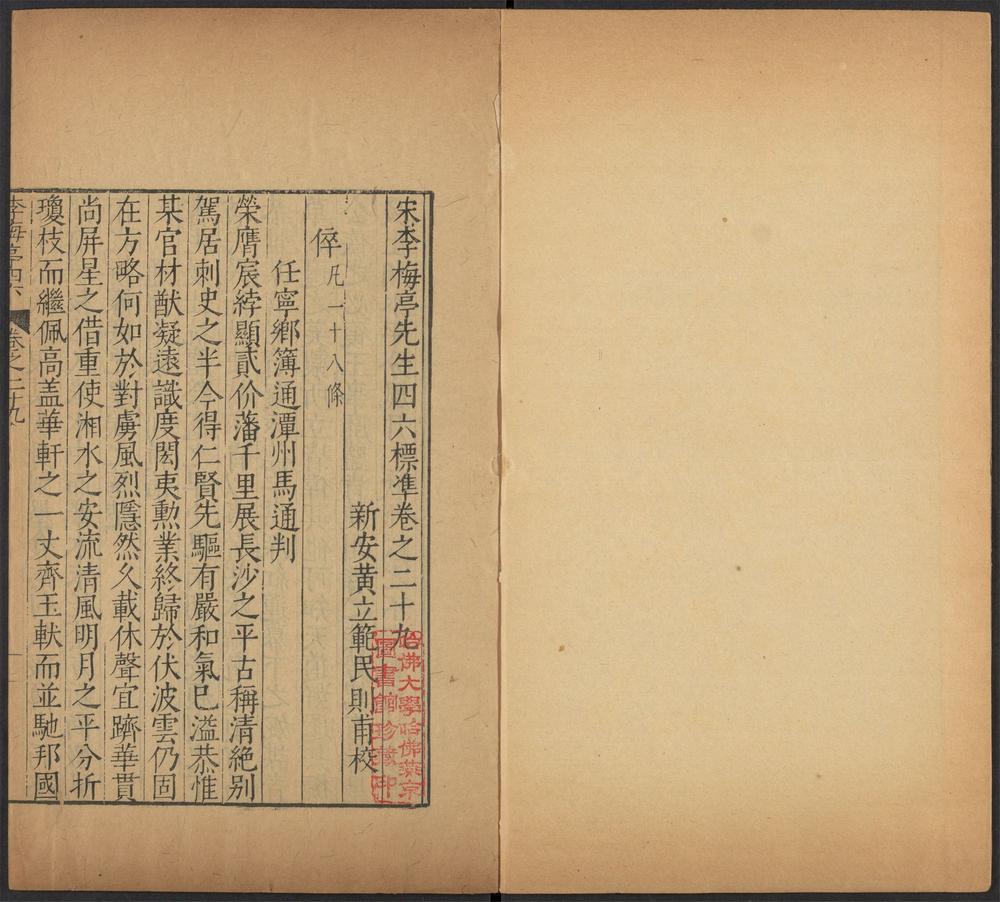 宋李梅亭先生四六標準卷之二十九
新安黄立範民則甫校
倅凡一十八條
任寧鄉簿通潭州馬通判
榮膺宸綍顯貳价藩千里展長沙之平古稱清絶别
駕居刺史之半今得仁賢先驅有嚴和氣已溢恭惟
某官材猷凝遠識度閎夷勲業終歸於伏波雲仍固
在方略何如於對虜風烈隱然久載休聲宜躋華貫
尚屏星之借重使湘水之安流清風明月之平分折
瓊枝而繼佩高盖華軒之一丈齊玉軑而並馳邦國
李梅亭四六 卷之二十九
哈佛大學哈佛燕京
圖書館珍藏印